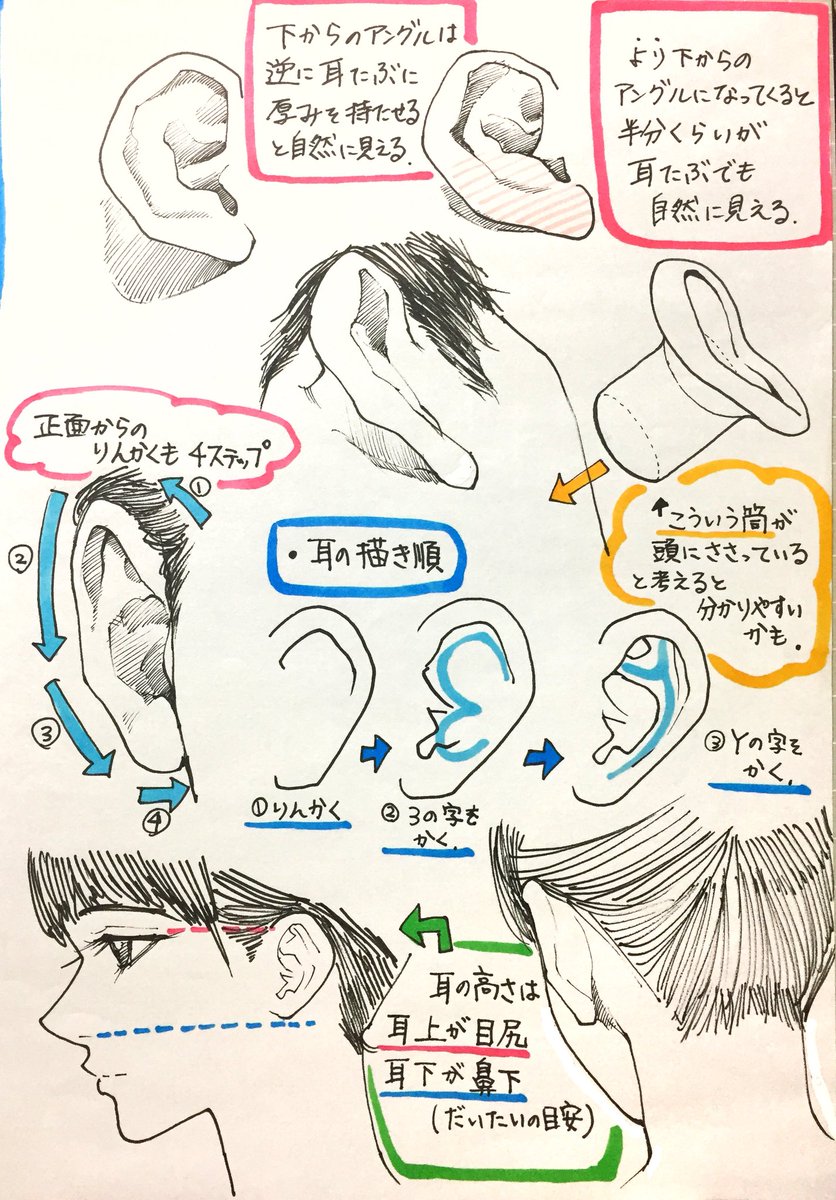 下からのアングルは
逆に耳たぶに
厚みを持たせる
と自然に見える.
より下からの
アングルになってくると
半分くらいが
耳たぶでも
自然に見える.
正面からの
りんかくも 4ステップ
①
②
③
④
↑こういう筒が
頭にささっている
と考えると
分かりやすい
かも.
・耳の描き順
①りんかく
②3の字を
かく.
③Yの字を
かく.
耳の高さは
耳上が目尻
耳下が鼻下
(だいたいの目安)